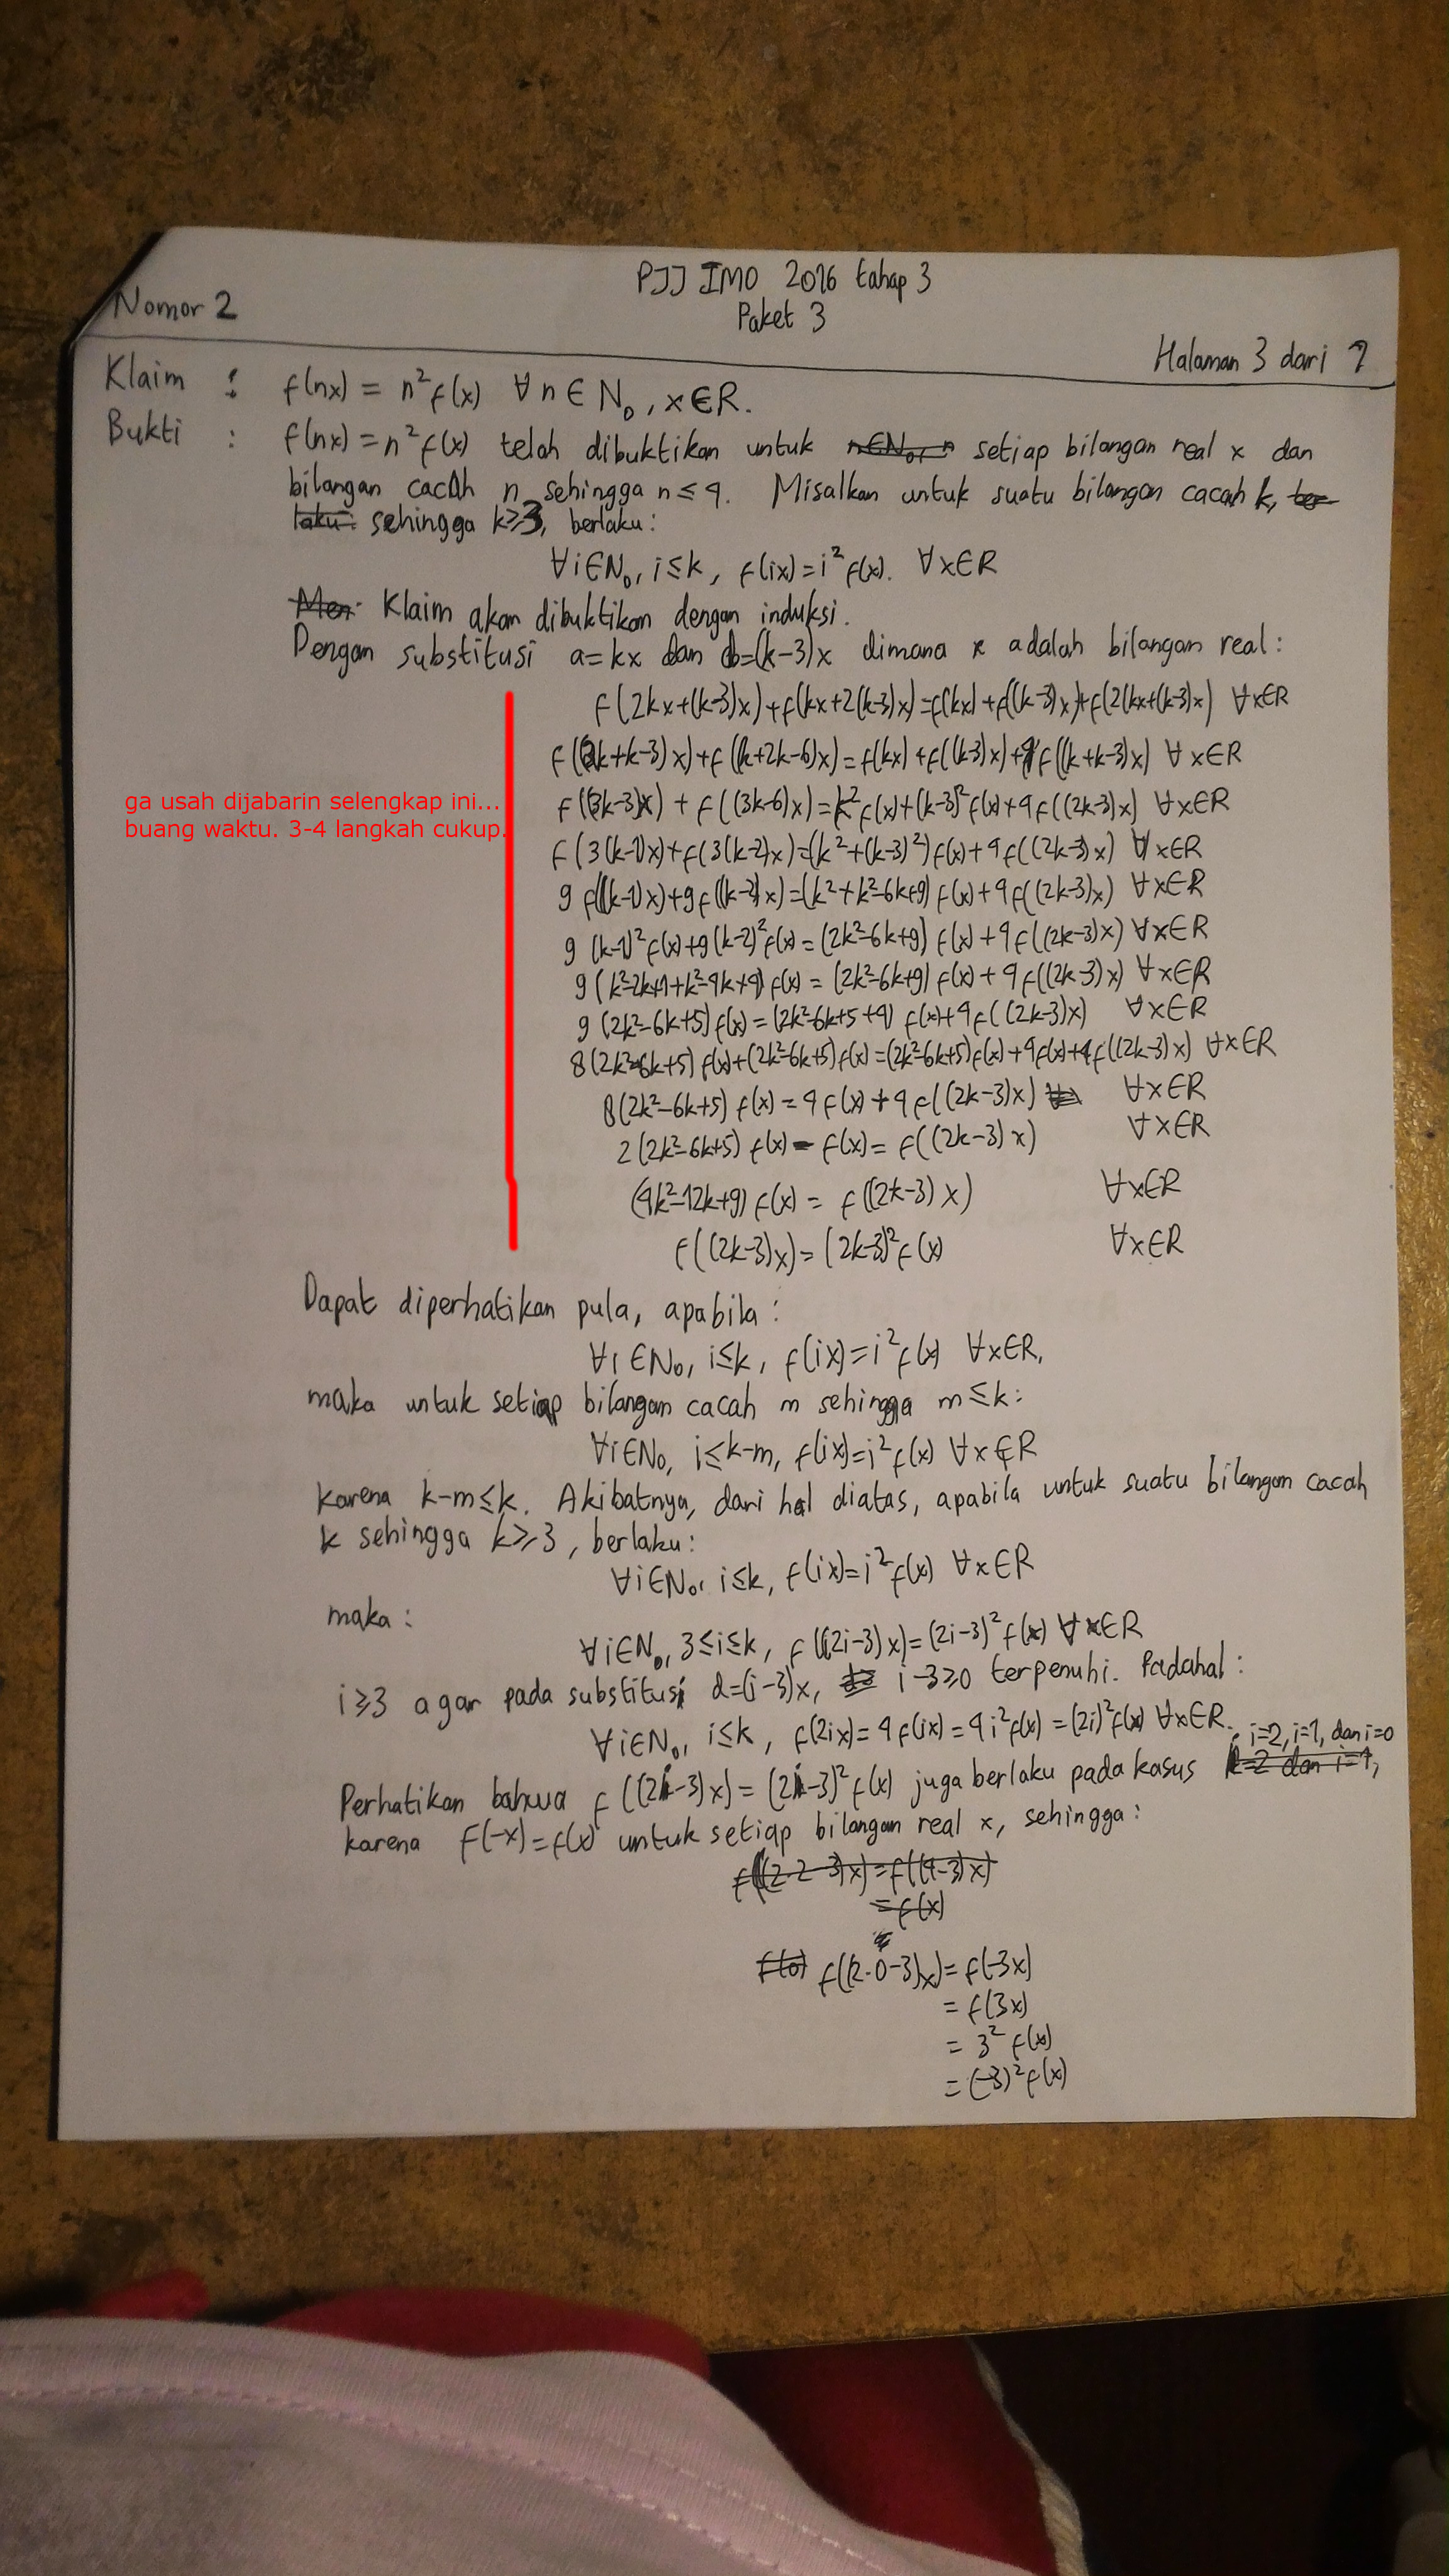 PJJ IMO 2016 tahap 3
Paket 3
Nomor 2
Halaman 3 dari 7
Klaim : f(nx) = n²f(x) ∀n∈N₀, x∈R.
Bukti : f(nx) = n²f(x) telah dibuktikan untuk setiap bilangan real x dan
bilangan cacah n sehingga n≤4. Misalkan untuk suatu bilangan cacah k,
sehingga k≥3, berlaku:
∀i∈N₀, i≤k, f(ix)=i²f(x). ∀x∈R
Klaim akan dibuktikan dengan induksi.
Dengan substitusi a=kx dan d=(k-3)x dimana x adalah bilangan real:
f(2kx+(k-3)x)+f(kx+2(k-3)x)=f(kx)+f((k-3)x)+f(2(kx+(k-3)x) ∀x∈R
f((2k+k-3)x)+f((k+2k-6)x)=f(kx)+f((k-3)x)+4f((k+k-3)x) ∀x∈R
ga usah dijabarin selengkap ini...
buang waktu. 3-4 langkah cukup.
f((3k-3)x) + f((3k-6)x)=k²f(x)+(k-3)²f(x)+4f((2k-3)x) ∀x∈R
f(3(k-1)x)+f(3(k-2)x)=(k²+(k-3)²)f(x)+4f((2k-3)x) ∀x∈R
9f((k-1)x)+9f((k-2)x)=(k²+k²-6k+9)f(x)+4f((2k-3)x) ∀x∈R
9(k-1)²f(x)+9(k-2)²f(x)=(2k²-6k+9)f(x)+4f((2k-3)x) ∀x∈R
9(k²-2k+1+k²-4k+4)f(x) = (2k²-6k+9)f(x)+4f((2k-3)x) ∀x∈R
9(2k²-6k+5)f(x)=(2k²-6k+5+4)f(x)+4f((2k-3)x) ∀x∈R
8(2k²-6k+5)f(x)+(2k²-6k+5)f(x)=(2k²-6k+5)f(x)+4f(x)+4f((2k-3)x) ∀x∈R
8(2k²-6k+5)f(x)=4f(x)+4f((2k-3)x) ∀x∈R
2(2k²-6k+5)f(x)-f(x)=f((2k-3)x) ∀x∈R
(4k²-12k+9)f(x) = f((2k-3)x) ∀x∈R
f((2k-3)x)=(2k-3)²f(x) ∀x∈R
Dapat diperhatikan pula, apabila:
∀i∈N₀, i≤k, f(ix)=i²f(x) ∀x∈R,
maka untuk setiap bilangan cacah m sehingga m≤k:
∀i∈N₀, i≤k-m, f(ix)=i²f(x) ∀x∈R
karena k-m≤k. Akibatnya, dari hal diatas, apabila untuk suatu bilangan cacah
k sehingga k≥3, berlaku:
∀i∈N₀, i≤k, f(ix)=i²f(x) ∀x∈R
maka:
∀i∈N₀, 3≤i≤k, f((2i-3)x)=(2i-3)²f(x) ∀x∈R
i≥3 agar pada substitusi d=(i-3)x, i-3≥0 terpenuhi. Padahal:
∀i∈N₀, i≤k, f(2ix)=4f(ix)=4i²f(x)=(2i)²f(x) ∀x∈R.
Perhatikan bahwa f((2i-3)x)=(2i-3)²f(x) juga berlaku pada kasus i=2, i=1, dan i=0
karena f(-x)=f(x) untuk setiap bilangan real x, sehingga:
f((2·2-3)x)=f((4-3)x)
=f(x)
f((2·0-3)x)=f(-3x)
= f(3x)
= 3²f(x)
= (-3)²f(x)